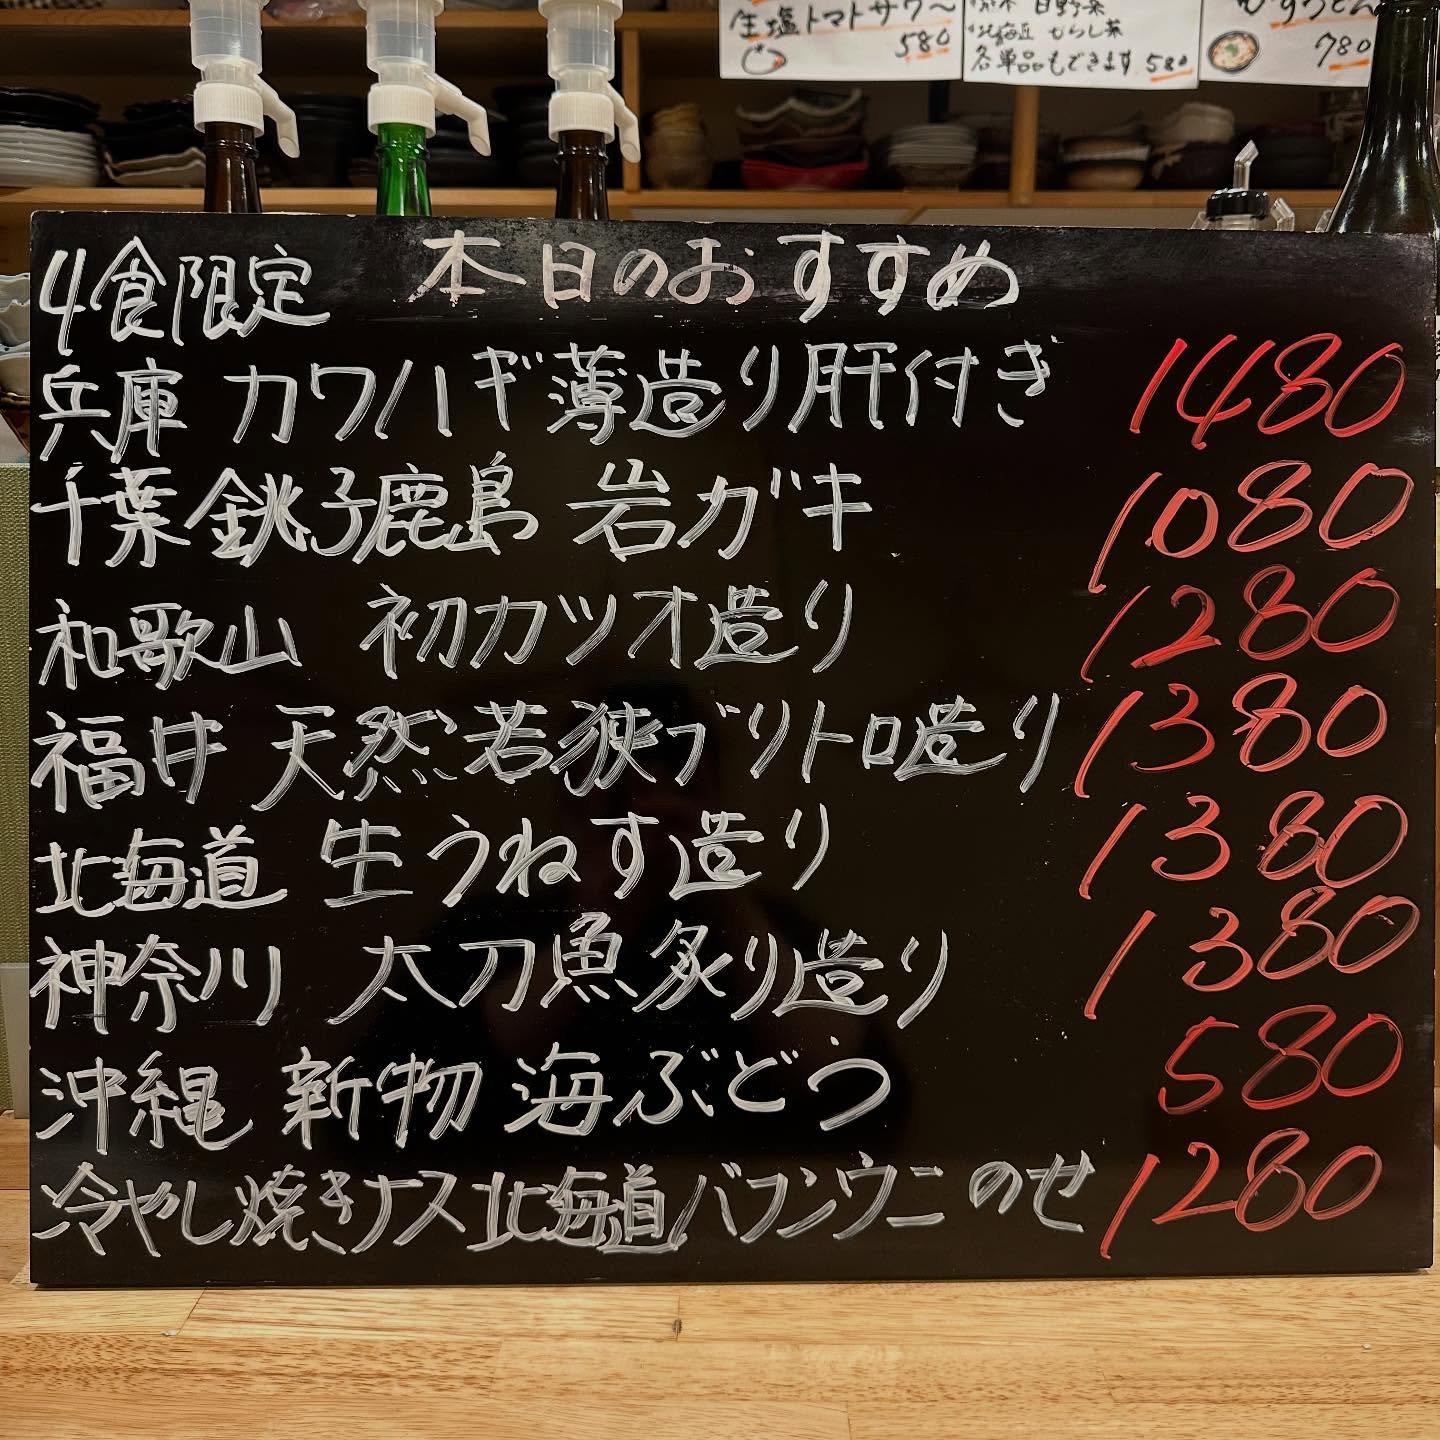 生塩トマトサワー
580
日野菜
北海道 からし菜
各単品もできます 580
780
4食限定 本日のおすすめ
兵庫 カワハギ薄造り肝付き 1480
千葉 銚子鹿島 岩ガキ 1080
和歌山 初カツオ造り 1280
福井 天然若狭ブリトロ造り 1380
北海道 生うねす造り 1380
神奈川 太刀魚炙り造り 1380
沖縄 新物 海ぶどう 580
冷やし焼きナス北海道バフンウニのせ 1280